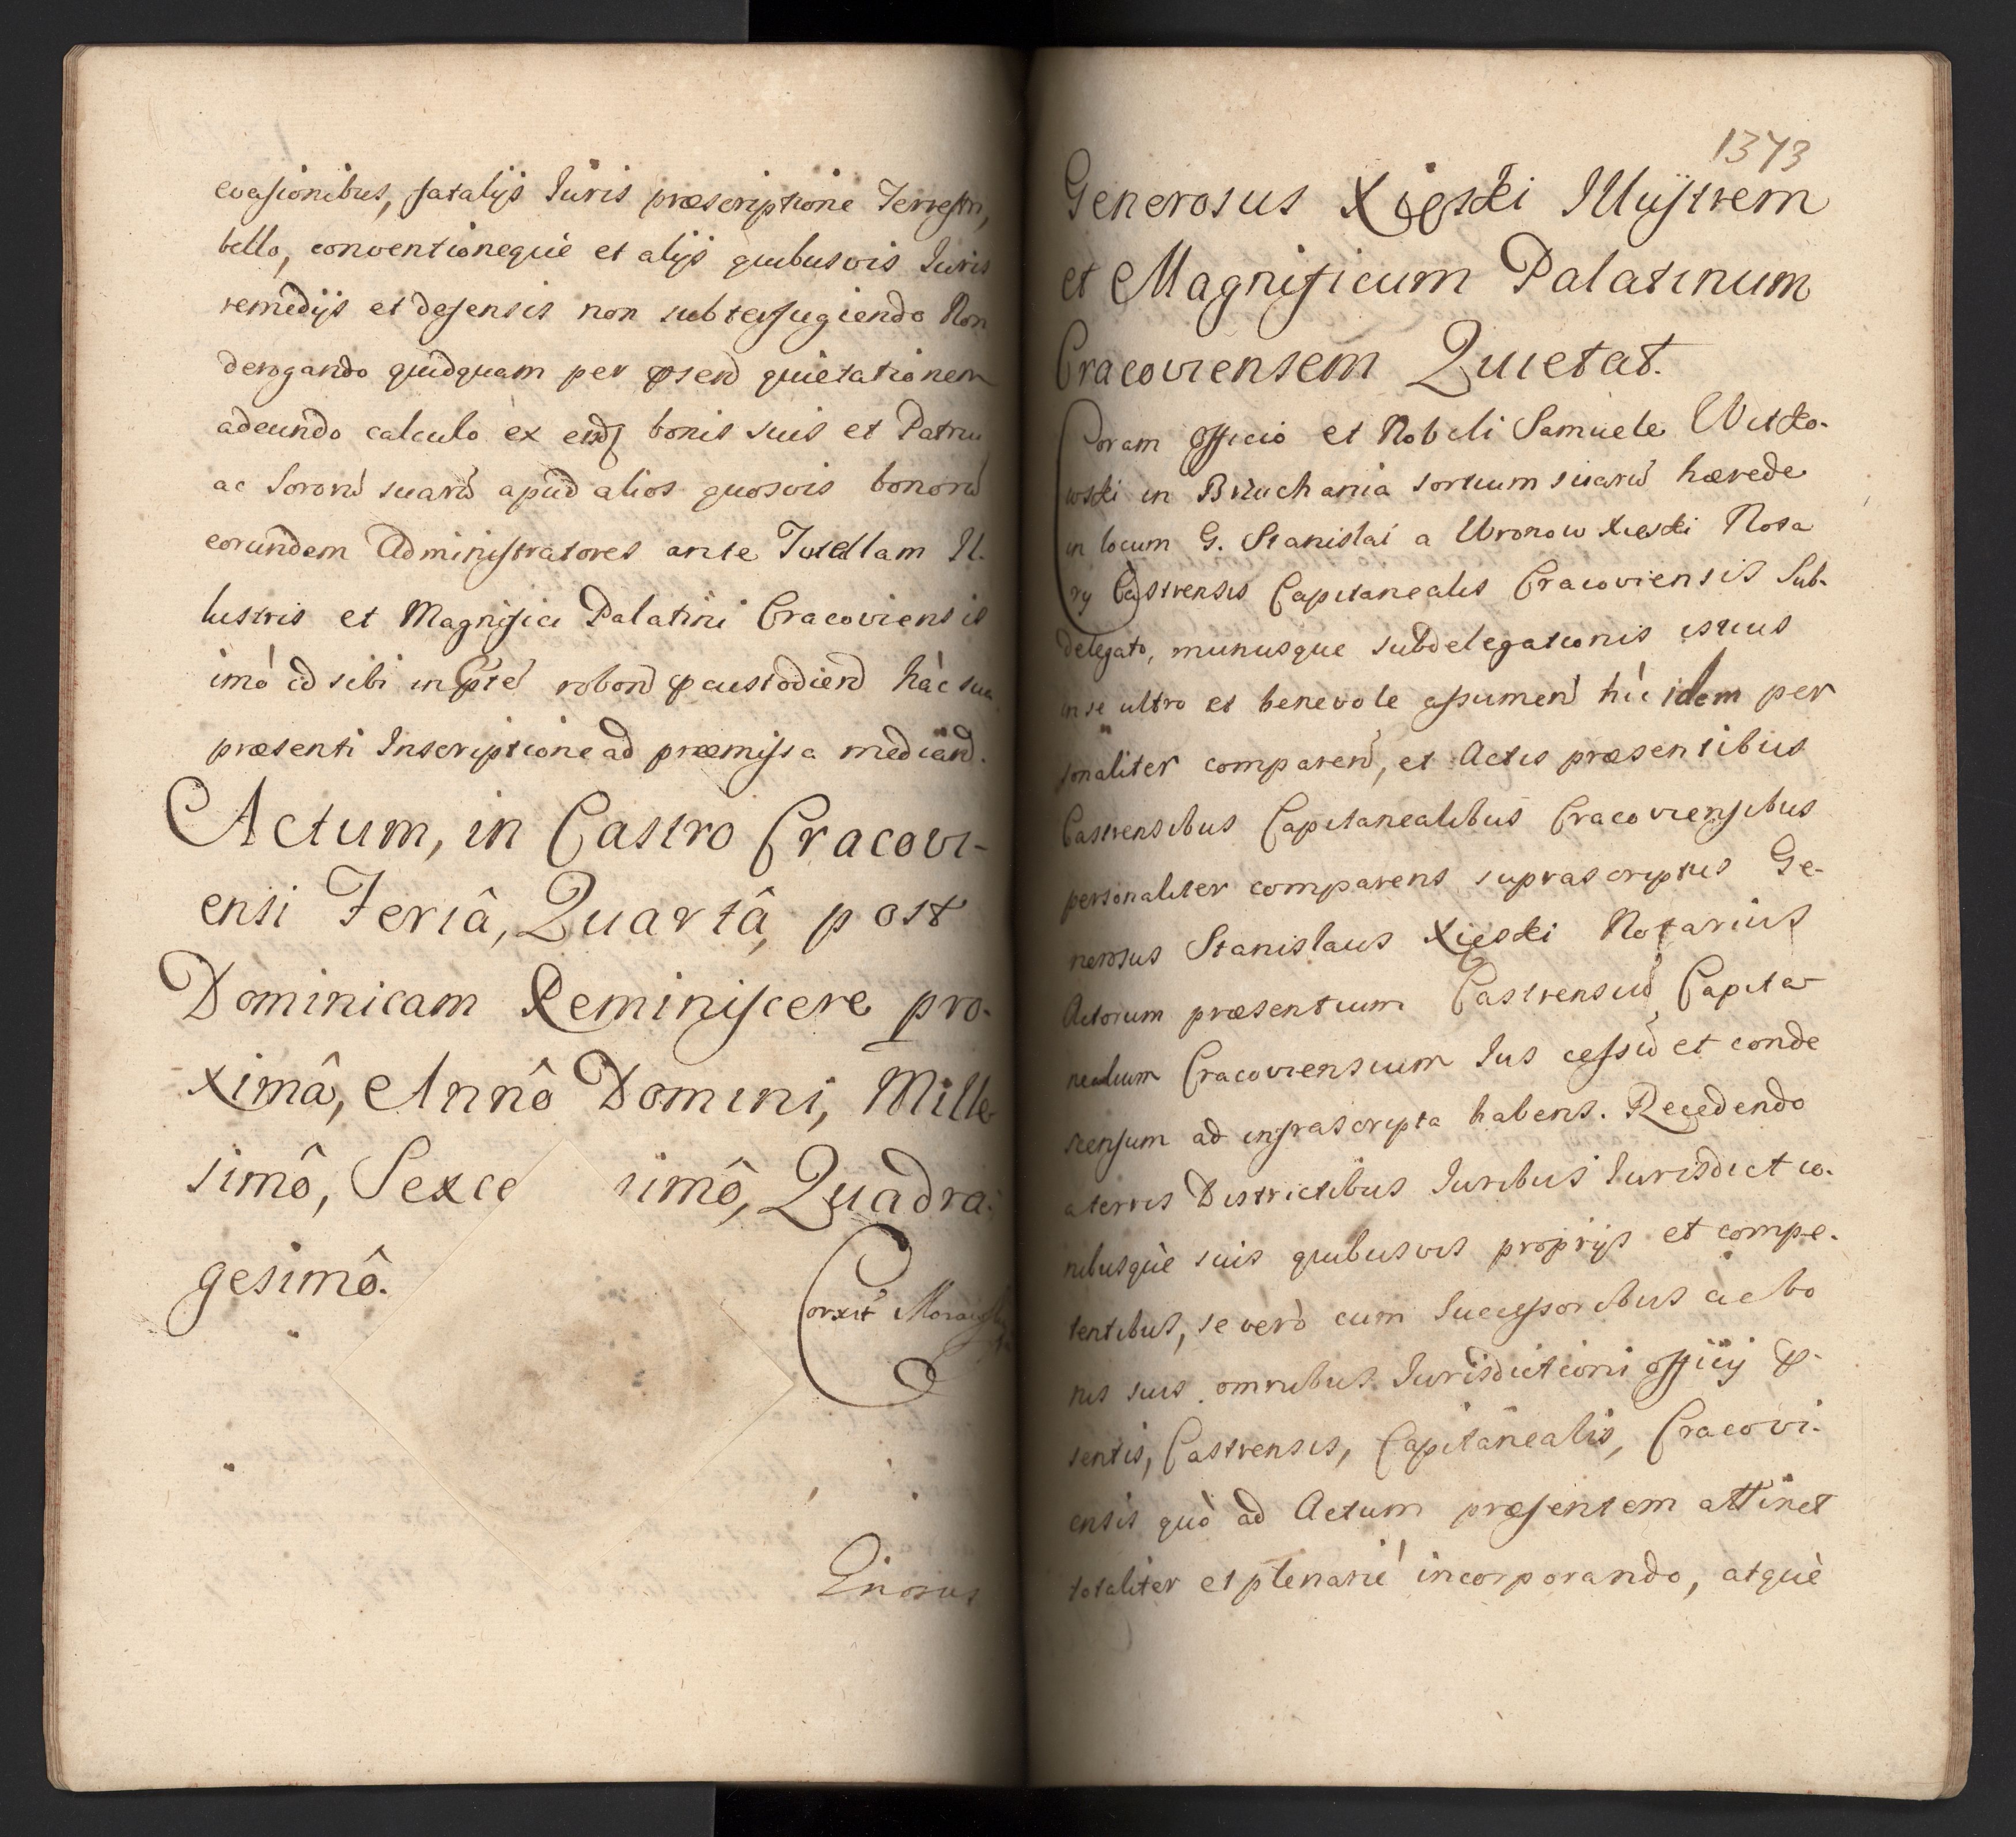 evasionibus, fatalijs Iuris præscriptione Terrestri,
bello, conventioneque et alijs quibusvis Iuris
remedijs et defensis non subterfugiendo Non
derogando quidquam per quietationem
adeundo calculo ex bonis suis et Patrui
ac Sororu suaru apud alios quosvis bonoru
eorundem Administratores ante Tutellam Il-
lustris et Magnifici Palatini Cracoviensis
imò id sibi in robord custodiend hâc sua
præsenti Inscriptione ad præmissa mediand.
Actum, in Castro Cracovi-
ensi Feriâ, Quartâ, post
Dominicam Reminiscere pro-
ximâ, Annô Domini, Mille-
simô, Sexce simô, Quadra-
gesimô.
Corxit
1373
Generosus Xięski Illustrem
et Magnificum Palatinum
Cracoviensem Quietat.
Coram Officio et Nobili Samuele Witko-
wski in Bruchania sortium suaru hærede
in locum G. Stanislai a Wronow Xięski Nota
rij Castrensis Capitanealis Cracoviensis Sub-
delegato, munusque subdelegationis istius
in se ultro et benevole assumen hìc idem per
sonaliter comparen, et Actis præsentibus
Castrensibus Capitanealibus Cracoviensibus
personaliter comparens suprascriptus Ge-
nerosus Stanislaus Xięski Notarius
Actorum præsentium Castrensiu Capita-
nealium Cracoviensium Ius cessu et conde
scensum ad infrascripta habens. Recedendo
a terris Districtibus Iuribus Iurisdictio-
nibusque suis quibusvis proprijs et compe-
tentibus, se verò cum Successoribus ac bo
nis suis omnibus Iurisdictioni officij p-
sentis, Castrensis, Capitanealis, Cracovi-
ensis quò ad Actum præsentem attinet
totaliter et plenarié incorporando, atquè